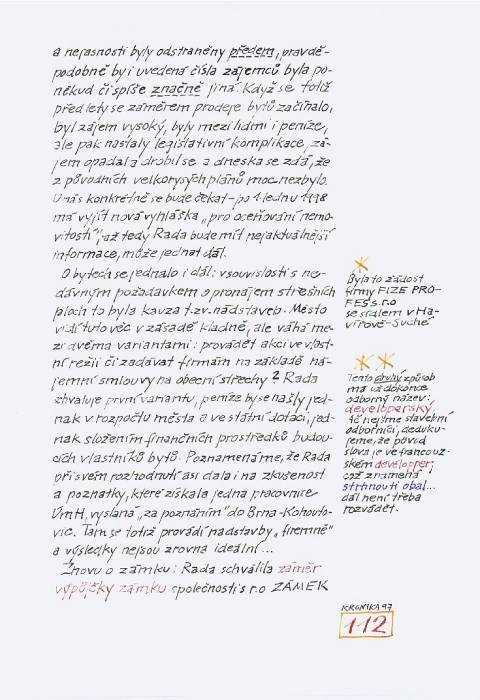 a nejasnosti byly odstraněny předem, pravdě-
podobně by i uvedená čísla zájemců byla po-
někud či spíše značně jiná. Když se totiž
před lety se záměrem prodeje bytů začínalo,
byl zájem vysoký, byly mezi lidmi i peníze,
ale pak nastaly legislativní komplikace, zá-
jem opadal a drobil se a dneska se zdá, že
z původních velkorysých plánů moc nezbylo.
U nás konkrétně se bude čekat - po 1. lednu 1998
má vyjít nová vyhláška „pro oceňování nemo-
vitostí", až tedy Rada bude mít nejaktuálnější
informace, může jednat dál.
O bytech se jednalo i dál: v souvislosti s ne-
dávným požadavkem o pronájem střešních
ploch to byla kauza t.zv. nádstaveb. Město
vidí tuto věc v zásadě kladně, ale váhá me-
zi dvěma variantami: provádět akci ve vlast-
ní režii či zadávat firmám na základě ná-
jemní smlouvy na obecní střechy? Rada
schvaluje první variantu, peníze by se našly jed-
nak v rozpočtu města a ve státní dotaci, jed-
nak složením finančních prostředků budou-
cích vlastníků bytů. Poznamenáme, že Rada
při svém rozhodnutí asi dala i na zkušenost
a poznatky, které získala jedna pracovnice
ÚMH, vyslaná „za poznáním" do Brna-Kohouto-
vic. Tam se totiž provádí nadstavby „firemně"
a výsledky nejsou zrovna ideální...
Znovu o zámku: Rada schválila záměr
výpůjčky zámku společnosti s r.o ZÁMEK
Byla to žádost
firmy FIZE PRO-
FES s.r.o
se sídlem v Ha-
vířově-Suché
Tento druhý způsob
má už dokonce
odborný název:
developerský.
Ač nejsme stavební
odborníci, deduku-
jeme, že původ
slova je ve francouz-
ském developper,
což znamená
strhnouti obal...
dál není třeba
rozvádět.
KRONIKA 97
112